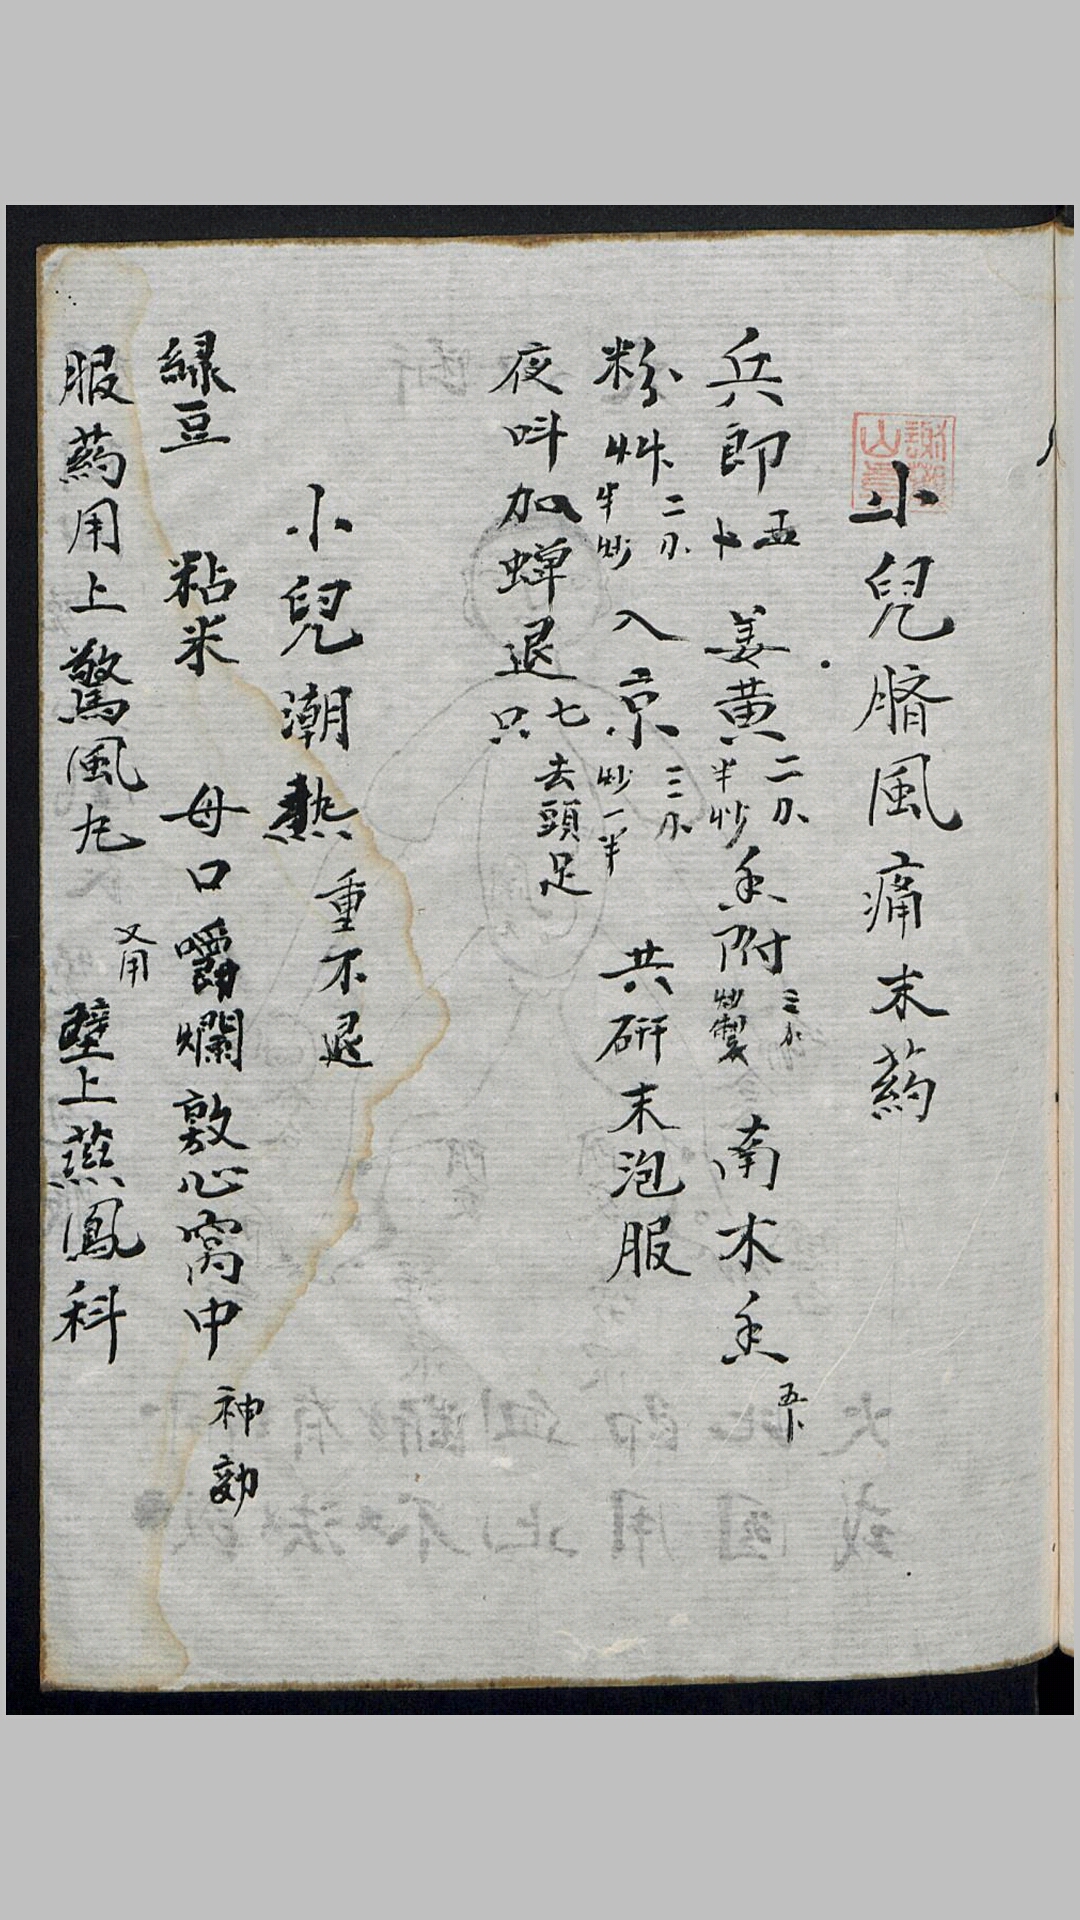 小兒臍風痛末葯
兵郎五卜 姜黃二刄半炒 香附三刄炒製 南木香五卜
粉艸二刄半炒 入京三刄炒一半 共研末泡服
夜呌加蟬退七只去頭足
小兒潮熱重不退
綠豆 粘米 母口嚼爛敷心窩中 神効
服葯用上驚風丸 又用 壁上燕鳳科